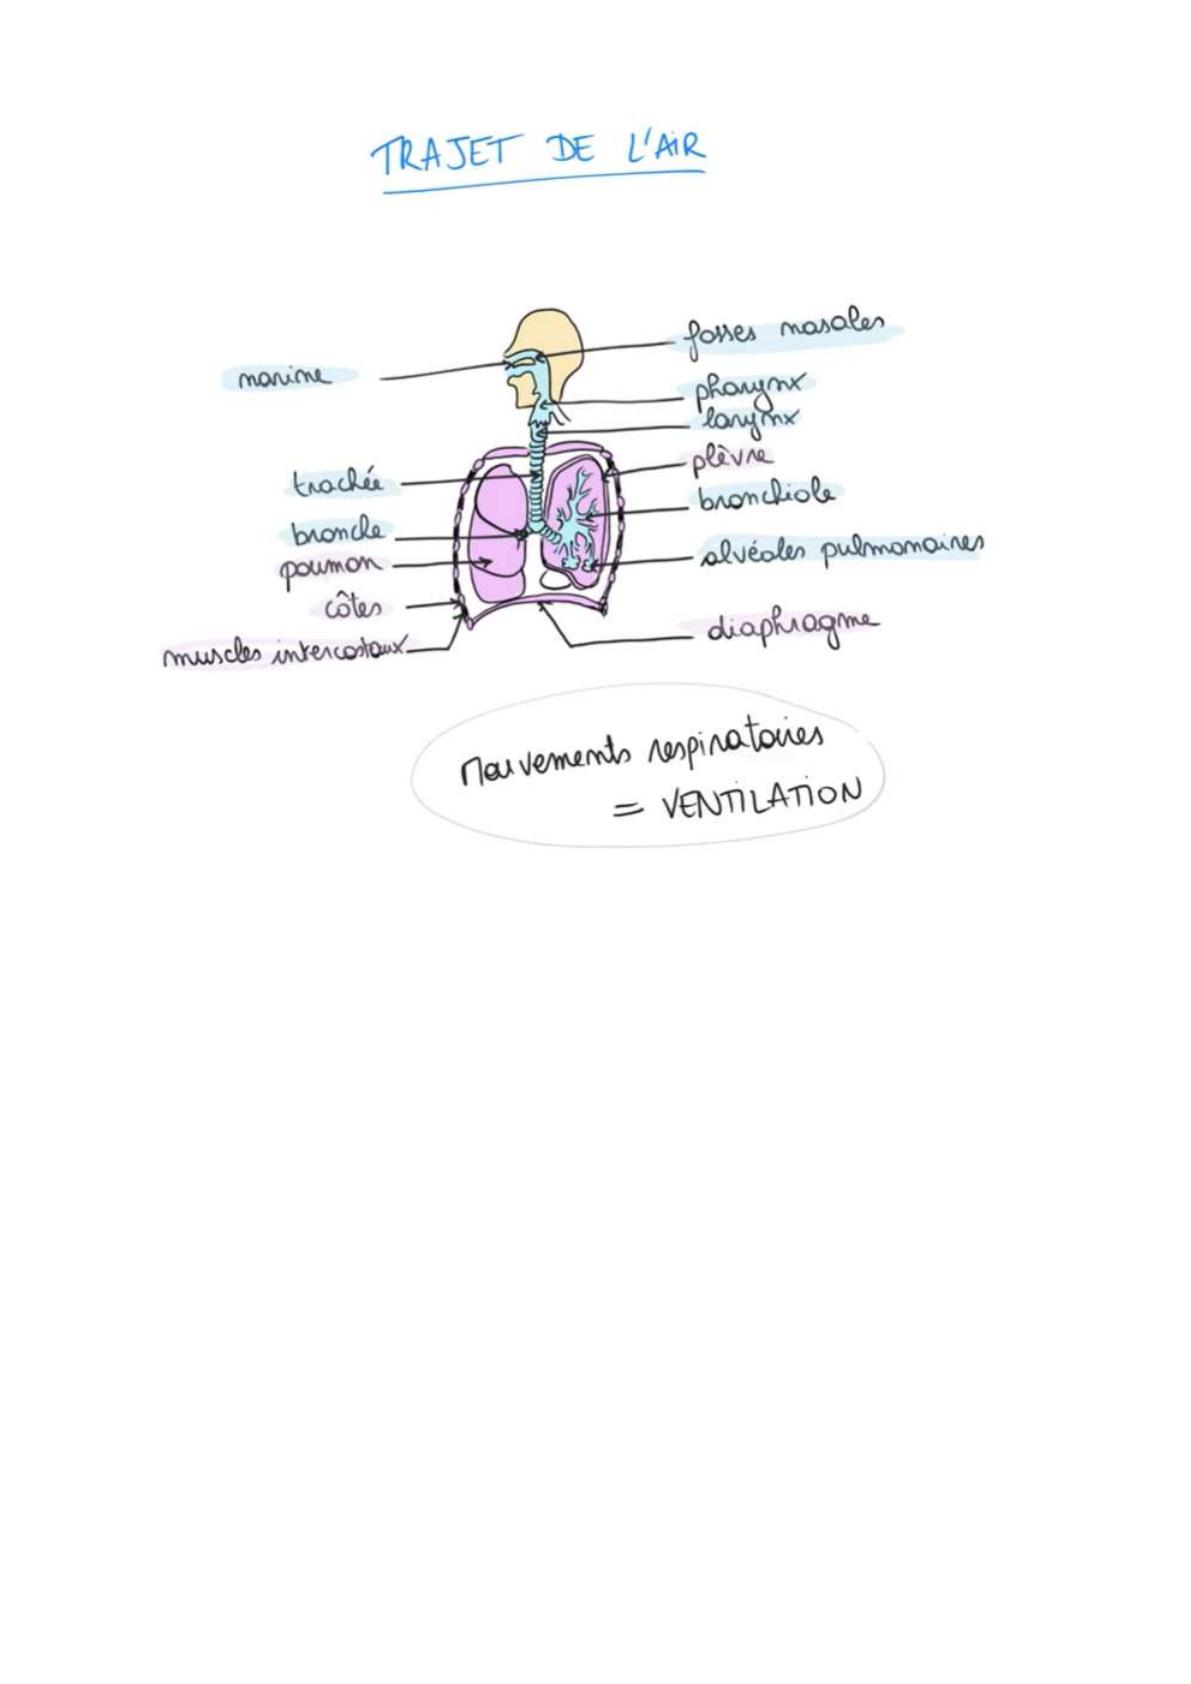 TRAJET DE L'AIR
fosses nasales
narine
pharynx
larynx
plèvre
trachée
bronchiole
bronche
alvéoles pulmonaires
poumon
côtes
diaphragme
muscles intercostaux
Mouvements respiratoires
= VENTILATION